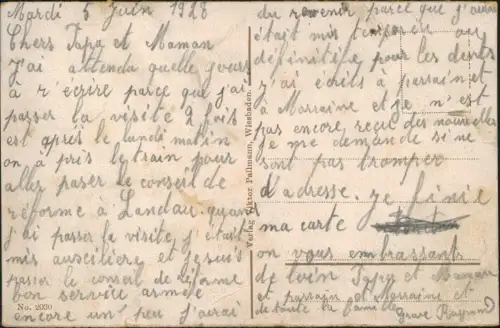 Mardi 5 juin 1928
Chers Papa et Maman
J'ai attendu quelle jours
à r'écrire parce que j'ai
passer la visite 2 fois
est après le lundi matin
on a pris le train pour
aller passer le conseil de
réforme à Landau. quand
j'ai passer la visite, j'étais
mis auscilière et je suis
passer le conseil de réforme
bon service armée
No. 2030
encore un peu j'aurai
Verlag Viktor Pallmann, Wiesbaden.
du revenir parce que j'au
était mis temporer ou
définitife pour les deux
j'ai écrits à parrain et
à Marraine et je n'est
pas encore reçu des nouvelles
je me demande si ne
sont pas tromper
d'adresse. je finie
ma carte
on vous embrassant
de loin Papa et Maman
et parrain et Marraine et
de toute la famille
Grave Raymond